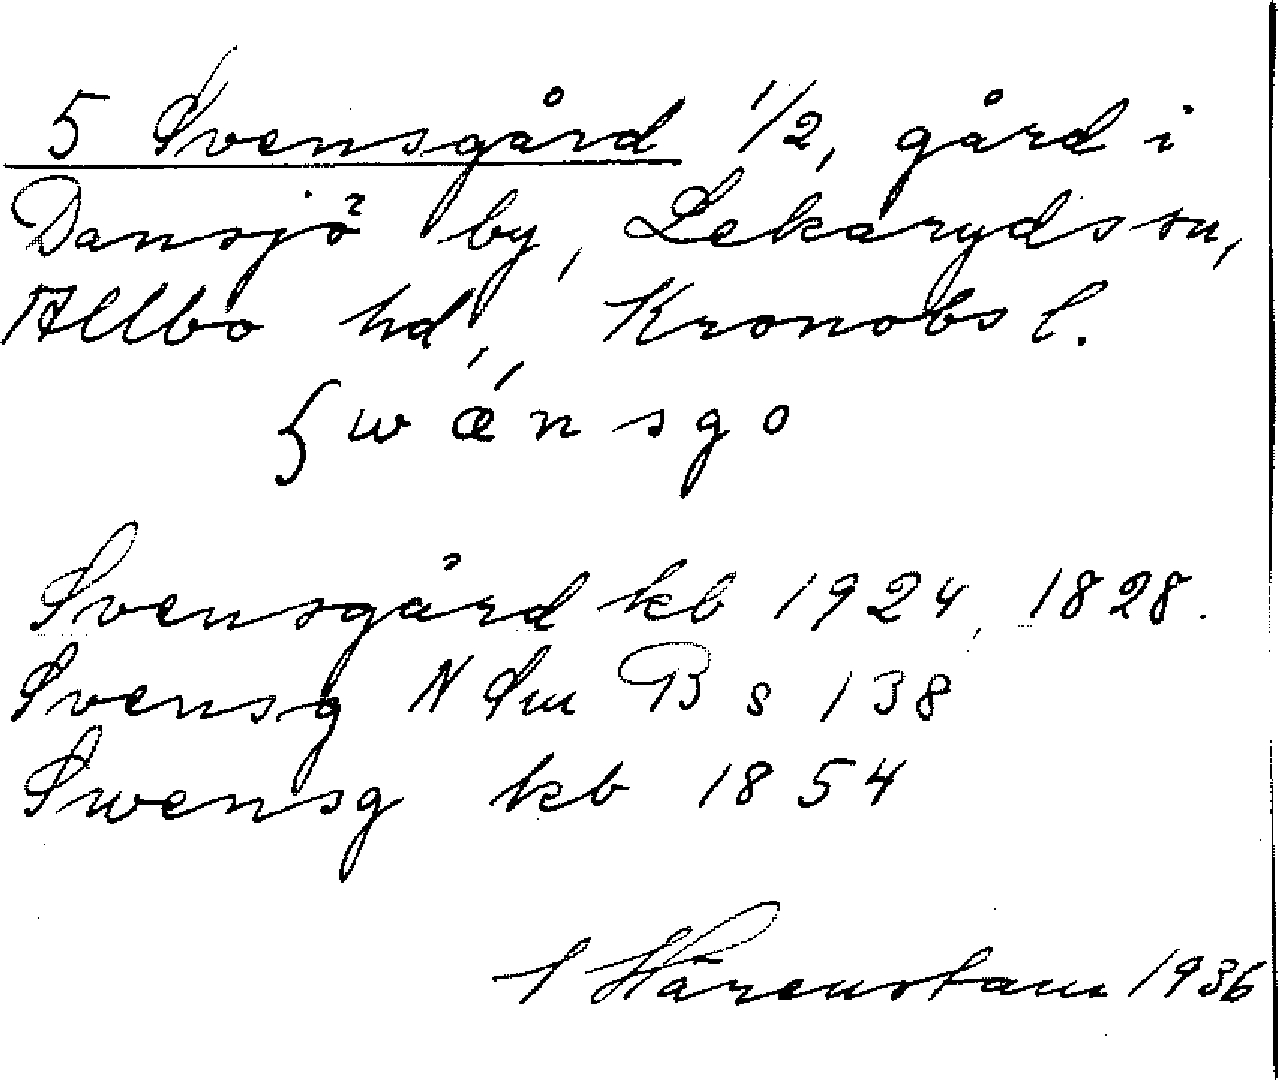 5 Svensgård 1/2, gård i
Dansjö by, Lekaryds sn,
Allbo hd, Kronobs l.
swǽnsgo
Svensgård kb 1924, 1828.
Svensg N Sm B s 138
Swensg kb 1854
Härenstam 1936